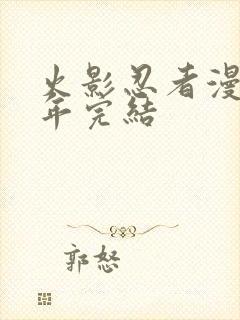 火影忍者漫
年完結
郭怒